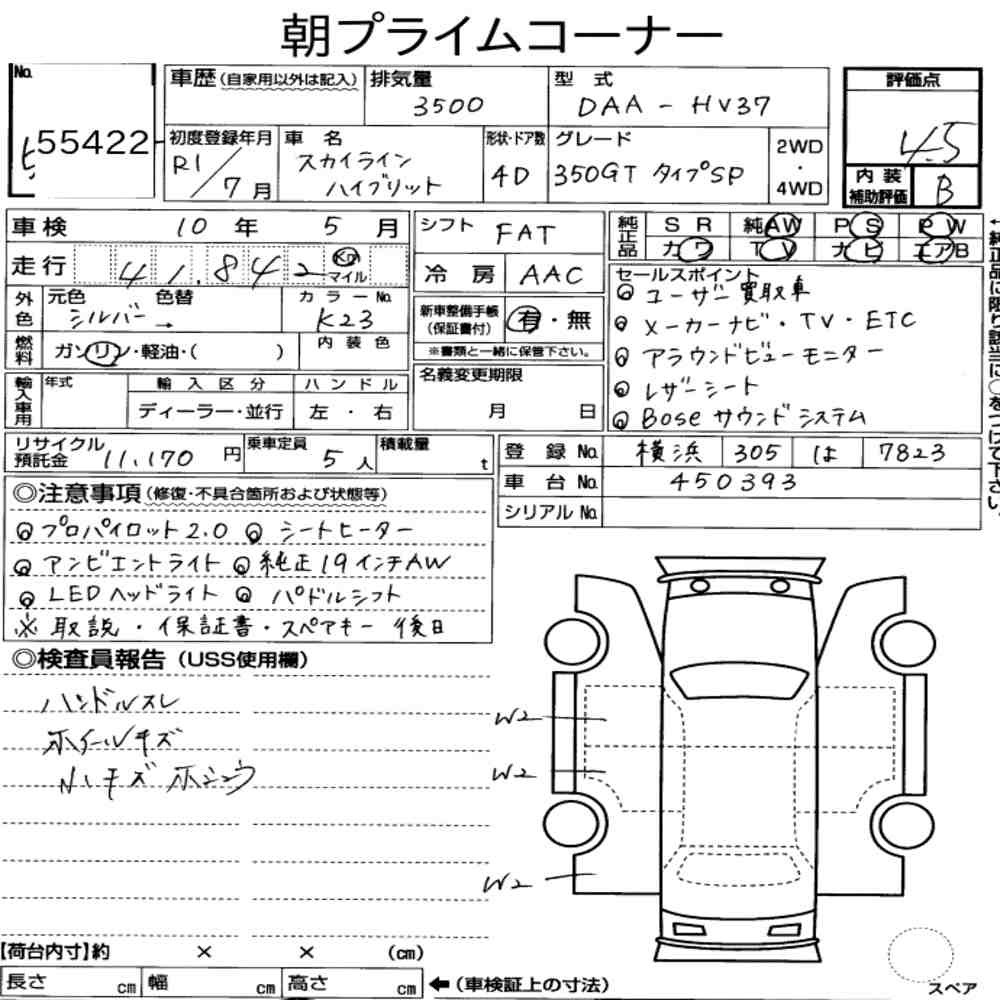 朝プライムコーナー
No.
ヒ 55422
車歴(自家用以外は記入) 排気量 3500 型式 DAA - HV37
初度登録年月 R1/7月 車名 スカイライン ハイブリット 形状・ドア数 4D グレード 350GT タイプSP 2WD・4WD
評価点 4.5
内装補助評価 B
車検 10年 5月
走行 41,842 Km マイル
外色 元色 シルバー 色替 → カラーNo. K23
燃料 ガソリン・軽油・( ) 内装色
輸入車用 年式 輸入区分 ディーラー・並行 ハンドル 左・右
シフト FAT
冷房 AAC
新車整備手帳(保証書付) 有・無
※書類と一緒に保管下さい。
名義変更期限 月 日
純正品 SR 純AW PS PW
カワ TV ナビ エアB
セールスポイント
◎ ユーザー買取車
◎ メーカーナビ・TV・ETC
◎ アラウンドビューモニター
◎ レザーシート
◎ Bose サウンドシステム
←純正品に限り該当に○をつけて下さい。
リサイクル預託金 11,170円 乗車定員 5人 積載量 t
登録No. 横浜 305 は 7823
車台No. 450393
シリアルNo.
◎注意事項(修復・不具合箇所および状態等)
◎ プロパイロット2.0 ◎ シートヒーター
◎ アンビエントライト ◎ 純正19インチAW
◎ LEDヘッドライト ◎ パドルシフト
※ 取説・保証書・スペアキー 後日
◎検査員報告(USS使用欄)
ハンドルスレ
ホイールキズ
小キズ ホシュウ
W2
W2
W2
【荷台内寸】約 × × (cm)
長さ cm 幅 cm 高さ cm ←(車検証上の寸法)
スペア